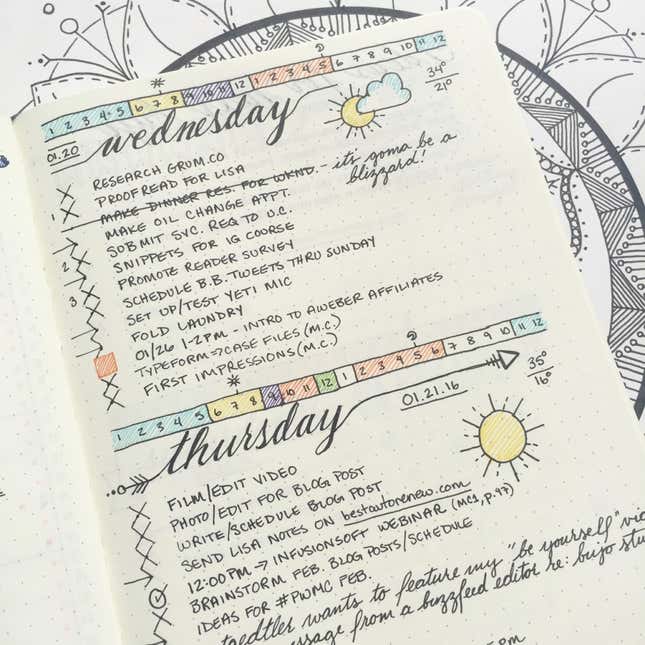 1 2 3 4 5 6 7 8 9 10 11 12 1 2 3 4 5 6 7 8 9 10 11 12
wednesday
01.20
34°
21°
RESEARCH GRUM.CO
PROOFREAD FOR LISA
MAKE DINNER RES. FOR WKND. - it's gonna be a
blizzard!
1
MAKE OIL CHANGE APPT.
SUBMIT SVC. REQ TO U.C.
SNIPPETS FOR IG COURSE
2
PROMOTE READER SURVEY
SCHEDULE B.B. TWEETS THRU SUNDAY
3
SET UP/TEST YETI MIC
FOLD LAUNDRY
01/26 1-2PM - INTRO TO AWEBER AFFILIATES
TYPEFORM => CASE FILES (M.C.)
FIRST IMPRESSIONS (M.C.)
1 2 3 4 5 6 7 8 9 10 11 12 1 2 3 4 5 6 7 8 9 10 11 12
thursday
01.21.16
35°
16°
FILM/EDIT VIDEO
PHOTO/EDIT FOR BLOG POST
WRITE/SCHEDULE BLOG POST
SEND LISA NOTES ON bestautorenew.com
12:00 PM -> INFUSIONSOFT WEBINAR (MC1, p.97)
BRAINSTORM FEB. BLOG POSTS/SCHEDULE
IDEAS FOR #PWMC FEB.
wants to feature my "be yourself"
from a buzzfeed editor re: bujo